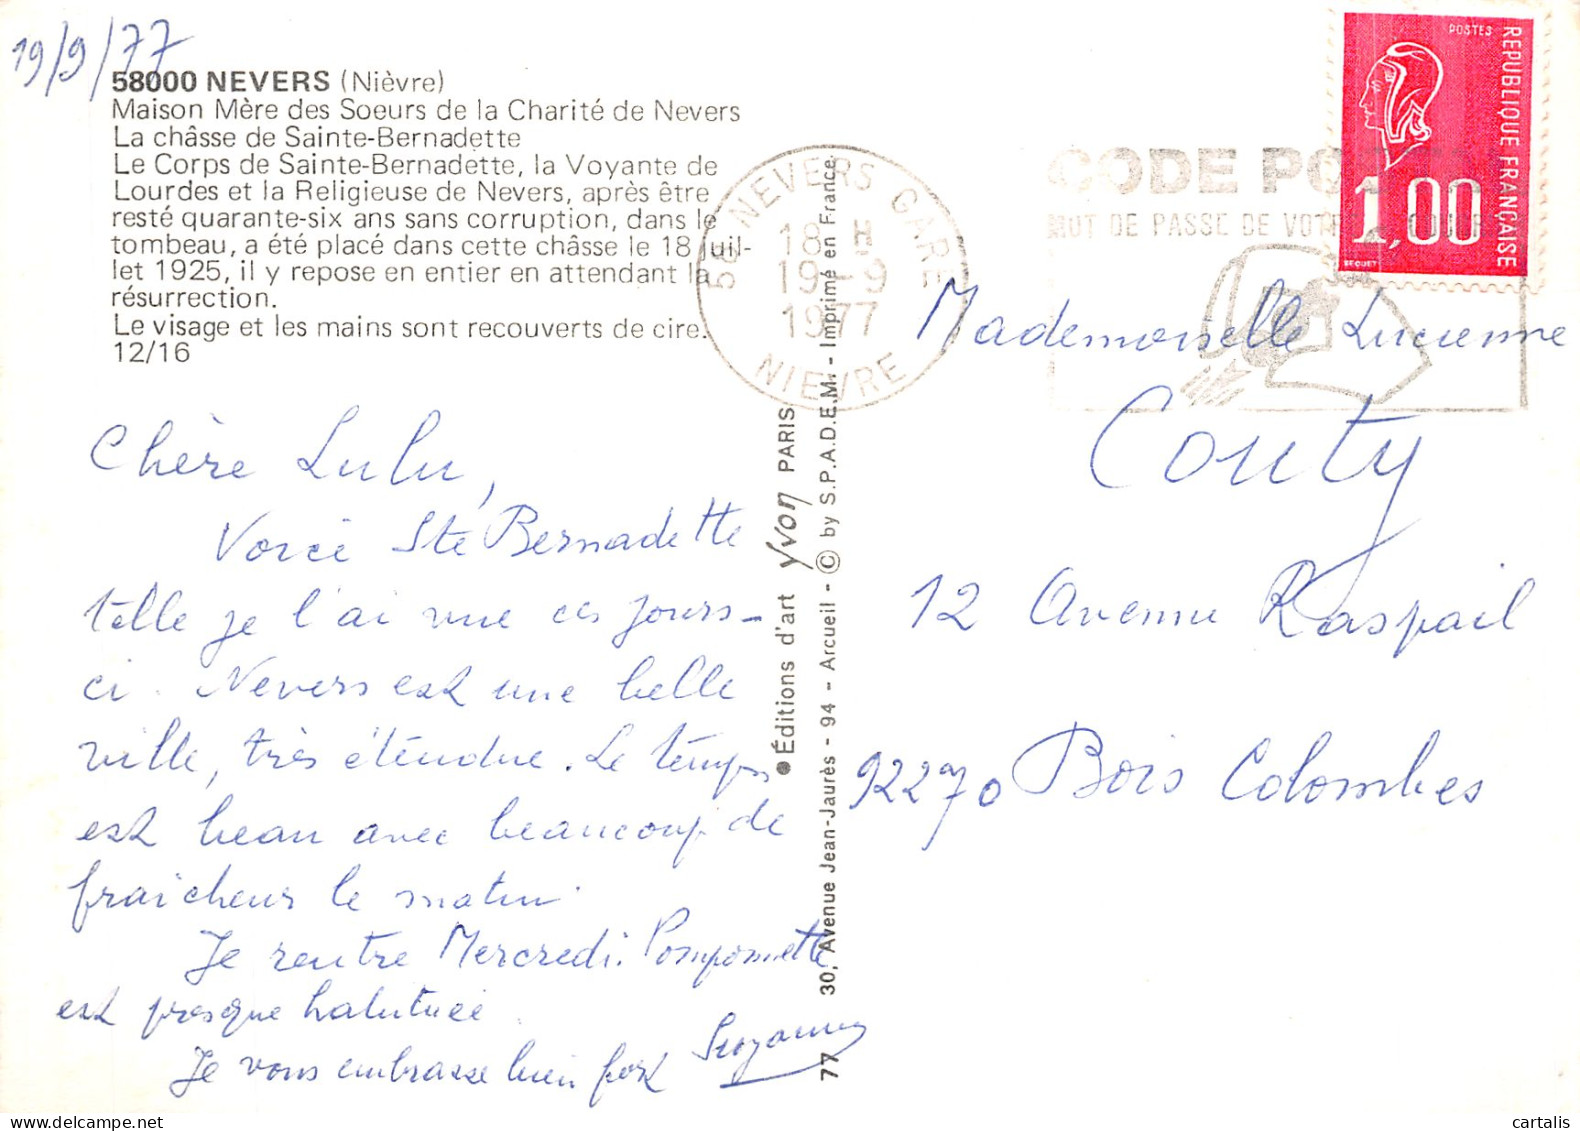 19/9/77
58000 NEVERS (Nièvre)
Maison Mère des Soeurs de la Charité de Nevers
La châsse de Sainte-Bernadette
Le Corps de Sainte-Bernadette, la Voyante de
Lourdes et la Religieuse de Nevers, après être
resté quarante-six ans sans corruption, dans le
tombeau, a été placé dans cette châsse le 18 juil-
let 1925, il y repose en entier en attendant la
résurrection.
Le visage et les mains sont recouverts de cire.
12/16
Chère Lulu,
Voici Ste Bernadette
telle je l'ai vue ces jours-
ci. Nevers est une belle
ville, très étendue. Le temps
est beau avec beaucoup de
fraîcheur le matin.
Je rentre Mercredi. Pomponnette
est presque habituée
Je vous embrasse bien fort Suzanne
58 NEVERS GARE
18 H
19-9
1977
NIEVRE
Éditions d'art Yvon PARIS
77 30, Avenue Jean-Jaurès - 94 - Arcueil - © by S.P.A.D.E.M. - Imprimé en France
CODE PO
MOT DE PASSE DE VOT
POSTES
REPUBLIQUE FRANÇAISE
1,00
BEQUET
Mademoiselle Lucienne
Couty
12 Avenue Raspail
92270 Bois Colombes
cartalis
cartalis.com